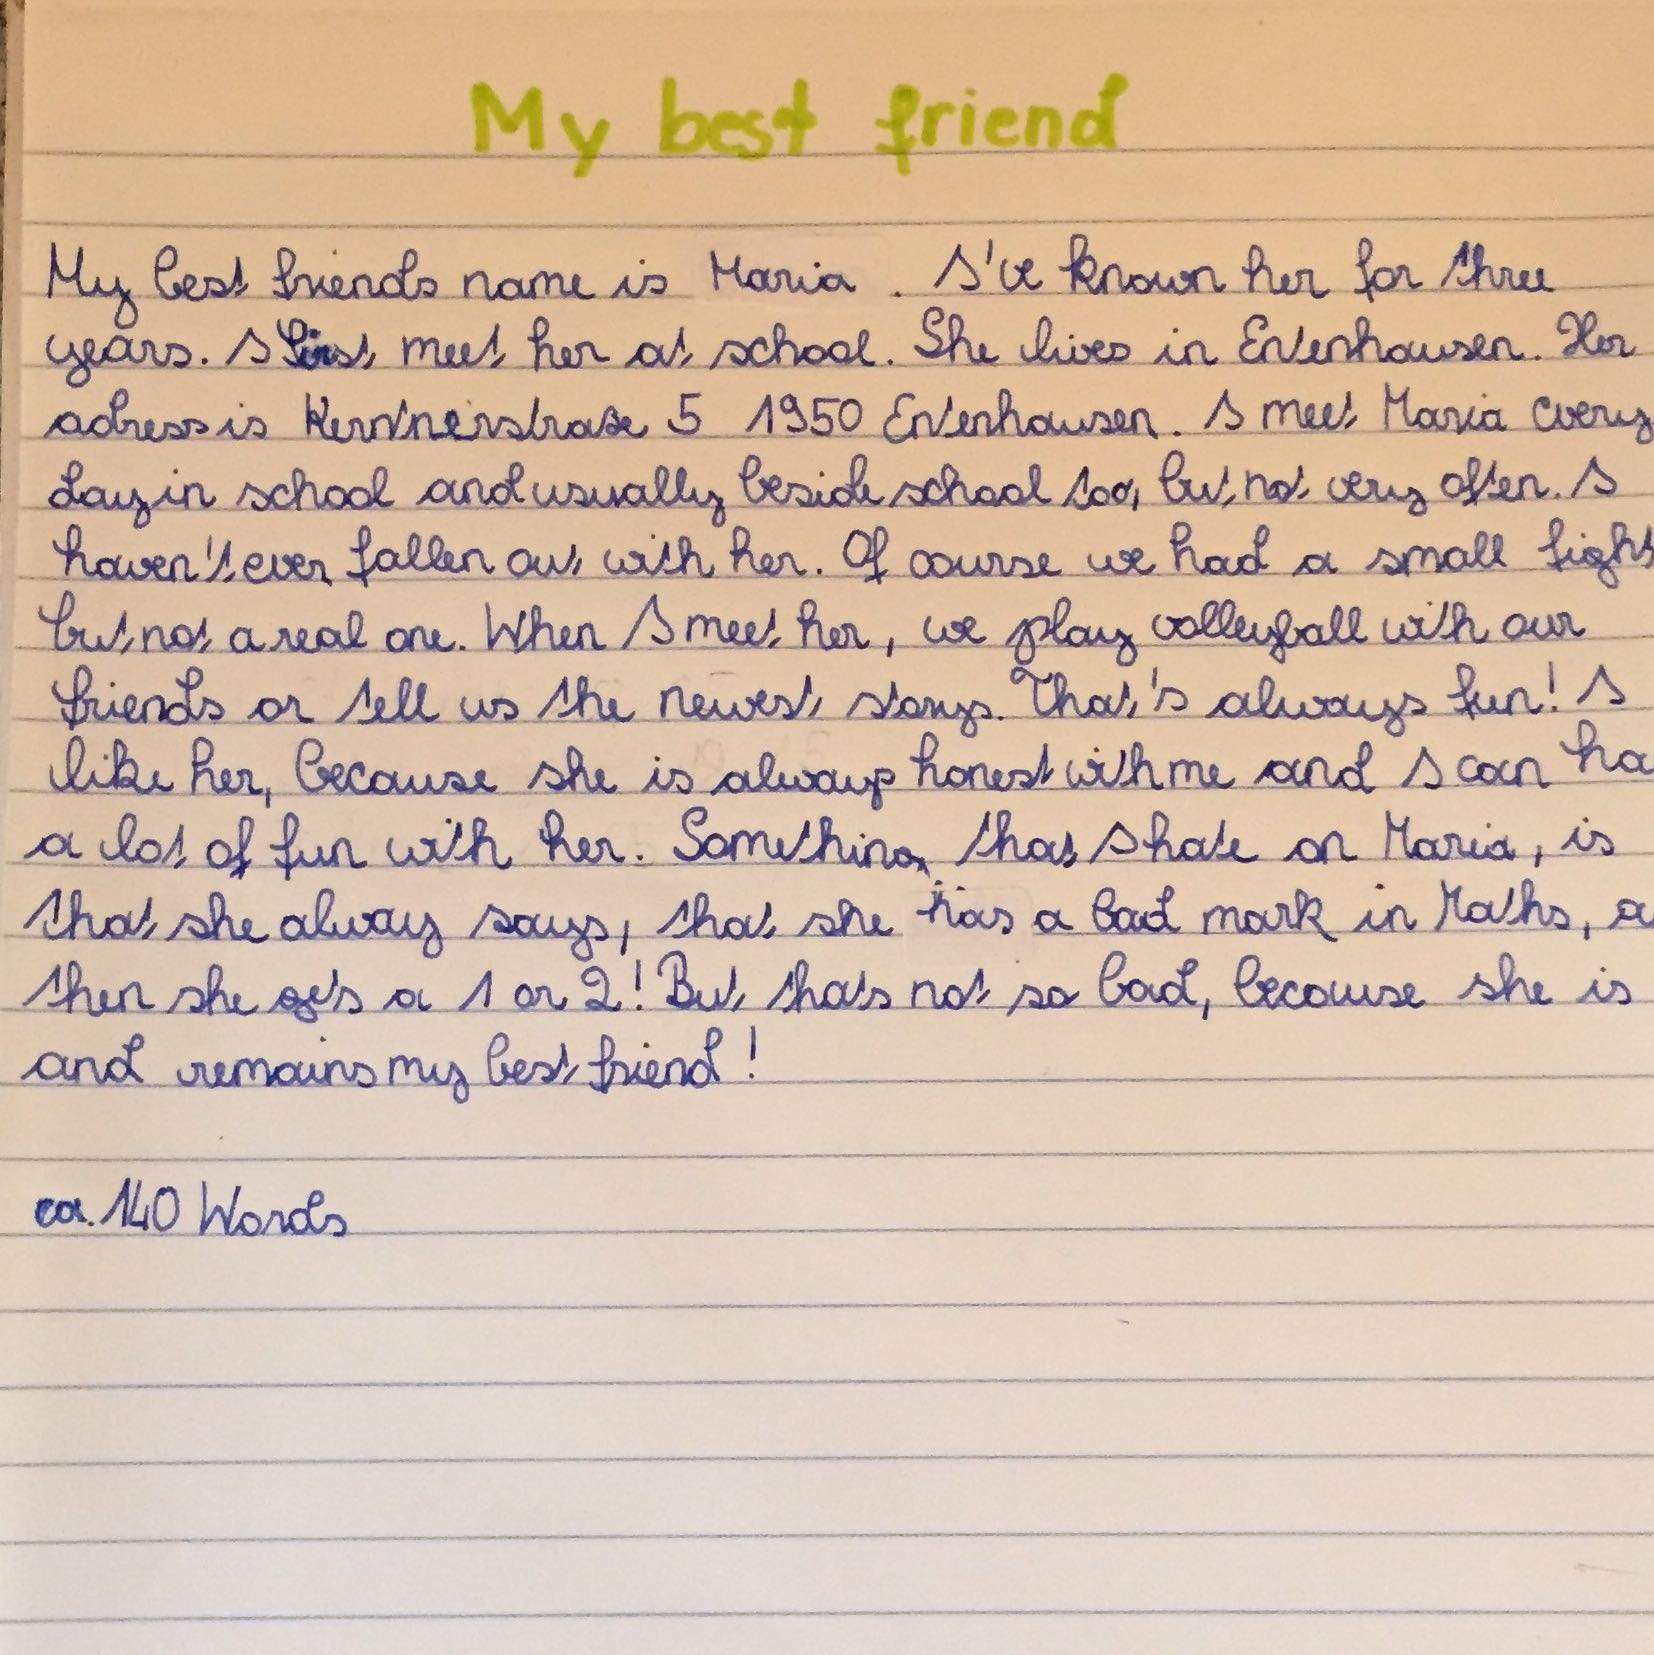 My best friend
My best friends name is Maria . I've known her for three
years. I first meet her at school. She lives in Entenhausen. Her
adress is Kerntnerstraße 5 1950 Entenhausen. I meet Maria every
day in school and usually beside school too, but not very often. I
haven't ever fallen out with her. Of course we had a small fight
but not a real one. When I meet her, we play volleyball with our
friends or tell us the newest storys. That's always fun! I
like her, because she is always honest with me and I can ha
a lot of fun with her. Something that I hate on Maria, is
that she alway says, that she has a bad mark in Maths, a
then she gets a 1 or 2! But thats not so bad, because she is
and remains my best friend!
ca. 140 Words